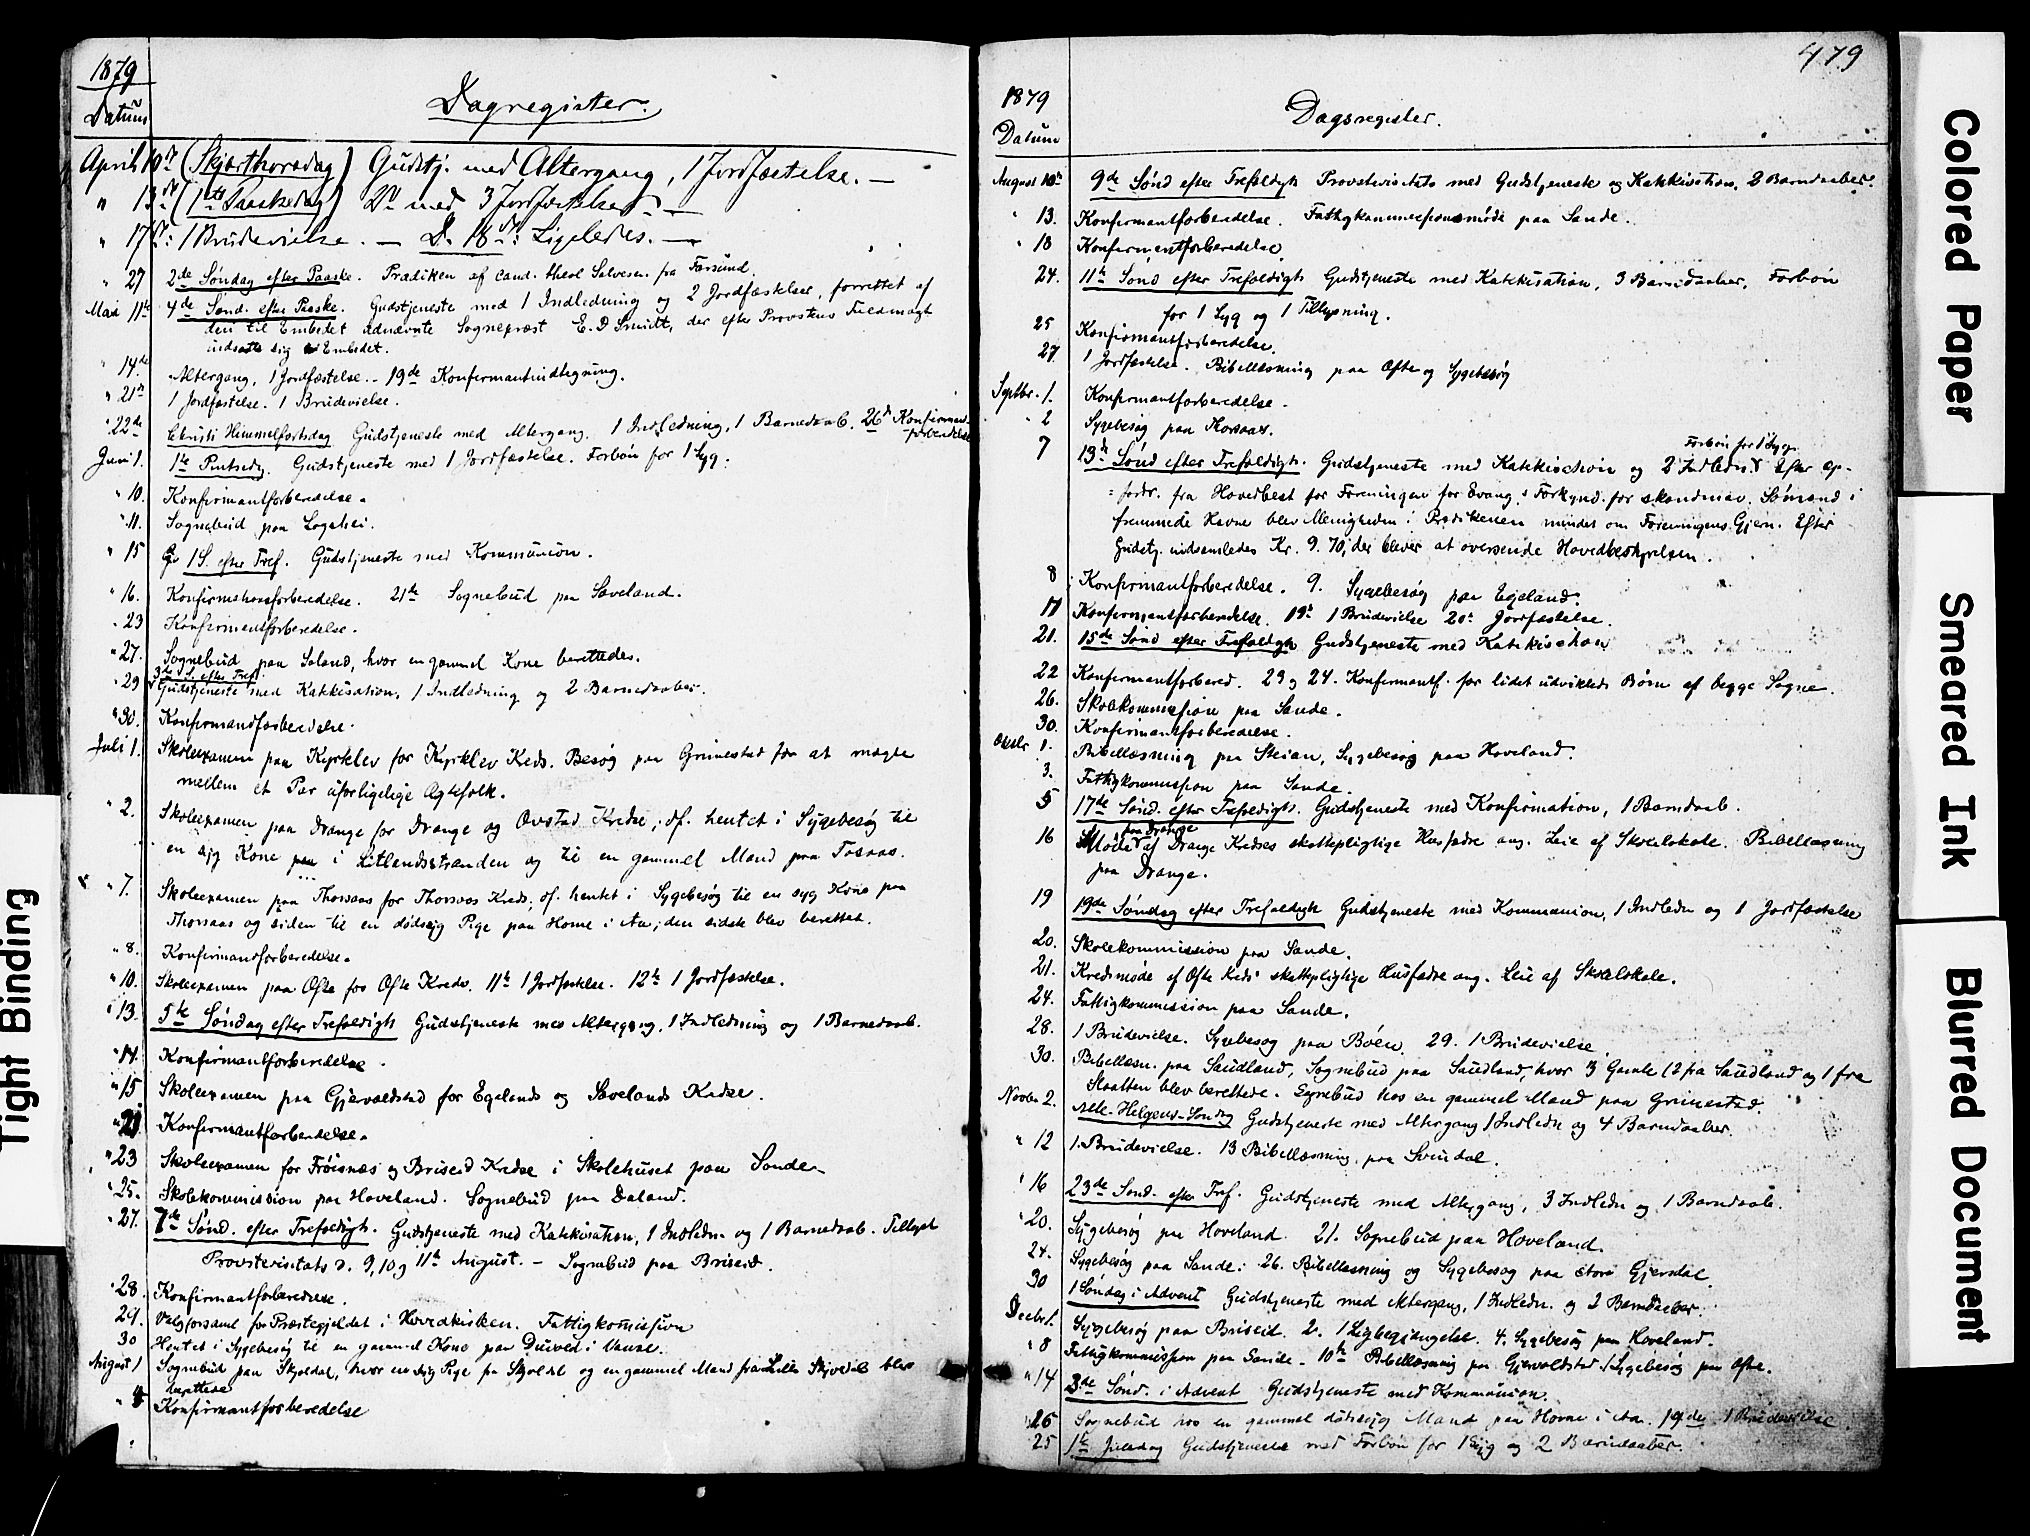 1879
Datum
Dagregister.
April 10de (Skjærthorsdag) Gudstj. med Altergang, 1 Jordfæstelse. —
" 13de (1ste Paaskedag) Do med 3 Jordfæstelser —
" 17de: 1 Brudevielse. — D. 18de: Ligeledes. —
" 27 2de Søndag efter Paaske. Prædiken af cand. theol Salvesen fra Farsund.
Mai 11te 4de Sønd. efter Paaske. Gudstjeneste med 1 Indledning og 2 Jordfæstelser, forrettet af
den til Embedet udnævnte Sognepræst E. D Smidt, der efter Provstens Fuldmagt
indsatte sig i Embedet.
" 14de Altergang, 1 Jordfæstelse. - 19de Konfirmantindtegning.
" 21de 1 Jordfæstelse. 1 Brudevielse.
" 22de Christi Himmelfartsdag Gudstjeneste med Altergang. 1 Indledning, 1 Barnedaab. 26de Konfirmant-
forberedelse
Juni 1. 1ste Pintsedg. Gudstjeneste med 1 Jordfæstelse. Forbøn for 1 Syg.
" 10. Konfirmantforberedelse.
" 11. Sognebud paa Løgehei.
" 15 1 S. efter Tref. Gudstjeneste med Kommunion.
" 16. Konfirmationsforberedelse. 21de Sognebud paa Sæveland.
" 23 Konfirmantforberedelse.
" 27. Sognebud paa Saland, hvor en gammel Kone berettedes.
3die S. efter Tref.
" 29 Gudstjeneste med Katekisation, 1 Indledning og 2 Barnedaaber.
" 30. Konfirmandforberedelse.
Juli 1. Skoleexamen paa Kyrklev for Kyrklev Kreds. Besøg paa Grimestad for at mægle
mellem et Par uforligelige Ægtefolk.
" 2. Skoleexamen paa Drange for Drange og Øvstad Kredse; do. hentet i Sygebesøg til
en syg Kone i Litlandsstranden og til en gammel Mand paa Tosaas.
" 7. Skoleexamen paa Thorsaas for Thorsaas Kreds; do. hentet i Sygebesøg til en syg Kone paa
Thorsaas og siden til en dødssyg Pige paa Horne i Aa; den sidste blev berettet.
" 8. Konfirmantforberedelse.
" 10. Skoleexamen paa Øfte for Øfte Kreds. 11te 1 Jordfæstelse. 12te 1 Jordfæstelse.
" 13. 5te Søndag efter Trefoldigh Gudstjeneste med Altergang, 1 Indledning og 1 Barnedaab.
" 14. Konfirmantforberedelse.
" 15 Skoleexamen paa Gjervoldstad for Egelands og Sævelands Kredse.
" 21 Konfirmantforberedelse.
" 23 Skoleexamen for Frøisnæs og Briseid Kredse i Skolehuset paa Sande
" 25. Skolekommission paa Hoveland. Sognebud paa Daland.
" 27. 7de Sønd. efter Trefoldigh. Gudstjeneste med Katekisation, 1 Indledn. og 1 Barnedaab. Tillyst
Provstevisitats d. 9, 10 og 11te August. - Sognebud paa Briseid.
" 28. Konfirmantforberedelse.
29. Valgforsaml for Præstegjeldet i Hovedkirken. Fattigkomission
30 Hentet i Sygebesøg til en gammel Kone paa Duived i Vanse.
August 1 Sognebud paa Skjoldal, hvor en syg Pige fra Skjoldal og en gammel Mand fra Lille Skjoldal blev
berettede
" 4 Konfirmantforberedelse
479
1879
Datum
Dagsregister.
August 10de 9de Sønd efter Trefoldigh Provstevisitats med Gudstjeneste og Katekisation, 2 Barnedaaber.
" 13. Konfirmantforberedelse. Fattigkommissionsmøde paa Sande.
" 18 Konfirmentforberedelse.
24. 11te Sønd efter Trefoldigh Gudstjeneste med Katekisation, 3 Barnedaaber, Forbøn
for 1 Syg og 1 Tillysning.
25 Konfirmantforberedelse.
27. 1 Jordfæstelse. Bibellæsning paa Øfte og Sygebesøg
Septbr. 1. Konfirmantforberedelse.
" 2 Sygebesøg paa Korsaas.
Forbøn for 1 Syg.
7 13de Sønd efter Trefoldigh. Gudstjeneste med Katekisation og 2 Indledn. Efter Op-
fordr. fra Hovedbest for Foreningen for Evang.s Forkynd. for skandinav. Sømænd i
fremmede Havne blev Menigheden i Prædikenen mindet om Foreningens Gjern. Efter
Gudstj. indsamledes Kr. 9. 70, der blever at oversende Hovedbestyrelsen.
8 Konfirmantforberedelse. 9. Sygebesøg paa Egeland.
17 Konfirmantforberedelse. 19de 1 Brudevielse 20de Jordfæstelse.
21. 15de Sønd efter Trefoldigh Gudstjeneste med Katekisation
22 Konfirmantforbered. 23 og 24. Konfirmantf. for lidet udviklede Børn af begge Sogne.
26. Skolekommission paa Sande.
30. Konfirmantforberedelse.
Oktbr 1. Bibellæsning paa Steian, Sygebesøg paa Hoveland.
3. Fattigkommission paa Sande.
5 17de Sønd. efter Trefoldigh. Gudstjeneste med Konfirmation, 1 Barnedaab.
paa Drange
16 Møde af Drange Kredses skattepligtige Husfædre ang. Leie af Skolelokale. Bibellæsning
paa Drange.
19 19de Søndag efter Trefoldigh Gudstjeneste med Kommunion, 1 Indledn og 1 Jordfæstelse
20. Skolekommission paa Sande.
21. Kredsmøde af Øfte Kreds' skattepligtige Husfædre ang. Leie af Skolelokale.
24. Fattigkommission paa Sande.
28. 1 Brudevielse. Sygebesøg paa Bøen. 29. 1 Brudevielse.
30. Bibellæsn. paa Saudland, Sognebud paa Saudland, hvor 3 Gamle (2 fra Saudland og 1 fra
Slaatten blev berettede. Sognebud hos en gammel Mand paa Grimestad.
Novbr 2. Alle-Helgens-Søndag Gudstjeneste med Altergang 1 Indledn og 4 Barnedaaber.
" 12 1. Brudevielse. 13 Bibellæsning paa Svindal.
" 16 23de Sønd. efter Tref. Gudstjeneste med Altergang, 3 Indledn og 1 Barnedaab.
" 20. Sygebesøg paa Hoveland 21. Sognebud paa Hoveland.
24. Sygebesøg paa Sande. 26. Bibellæsning og Sygebesøg paa store Gjersdal.
30 1 Søndag i Advent Gudstjeneste med Altergang, 1 Indledn. og 2 Barnedaaber.
Decbr 1. Sygebesøg paa Briseid. 2. 1 Ligbegjængelse. 4. Sygebesøg paa Hoveland.
" 8 Fattigkommission paa Sande. 10de Bibellæsning paa Gjervoldstad. Sygebesøg paa Øfte.
" 14 3de Sønd. i Advent Gudstjeneste med Kommunion.
Sognebud hos en gammel dødssyg Mand paa Horne i Aa. 19de 1 Brudevielse
25 1ste Juledag Gudstjeneste med Forbøn for 1 Syg og 2 Barnedaaber.
Colored Paper
Smeared Ink
Blurred Document
Tight Binding